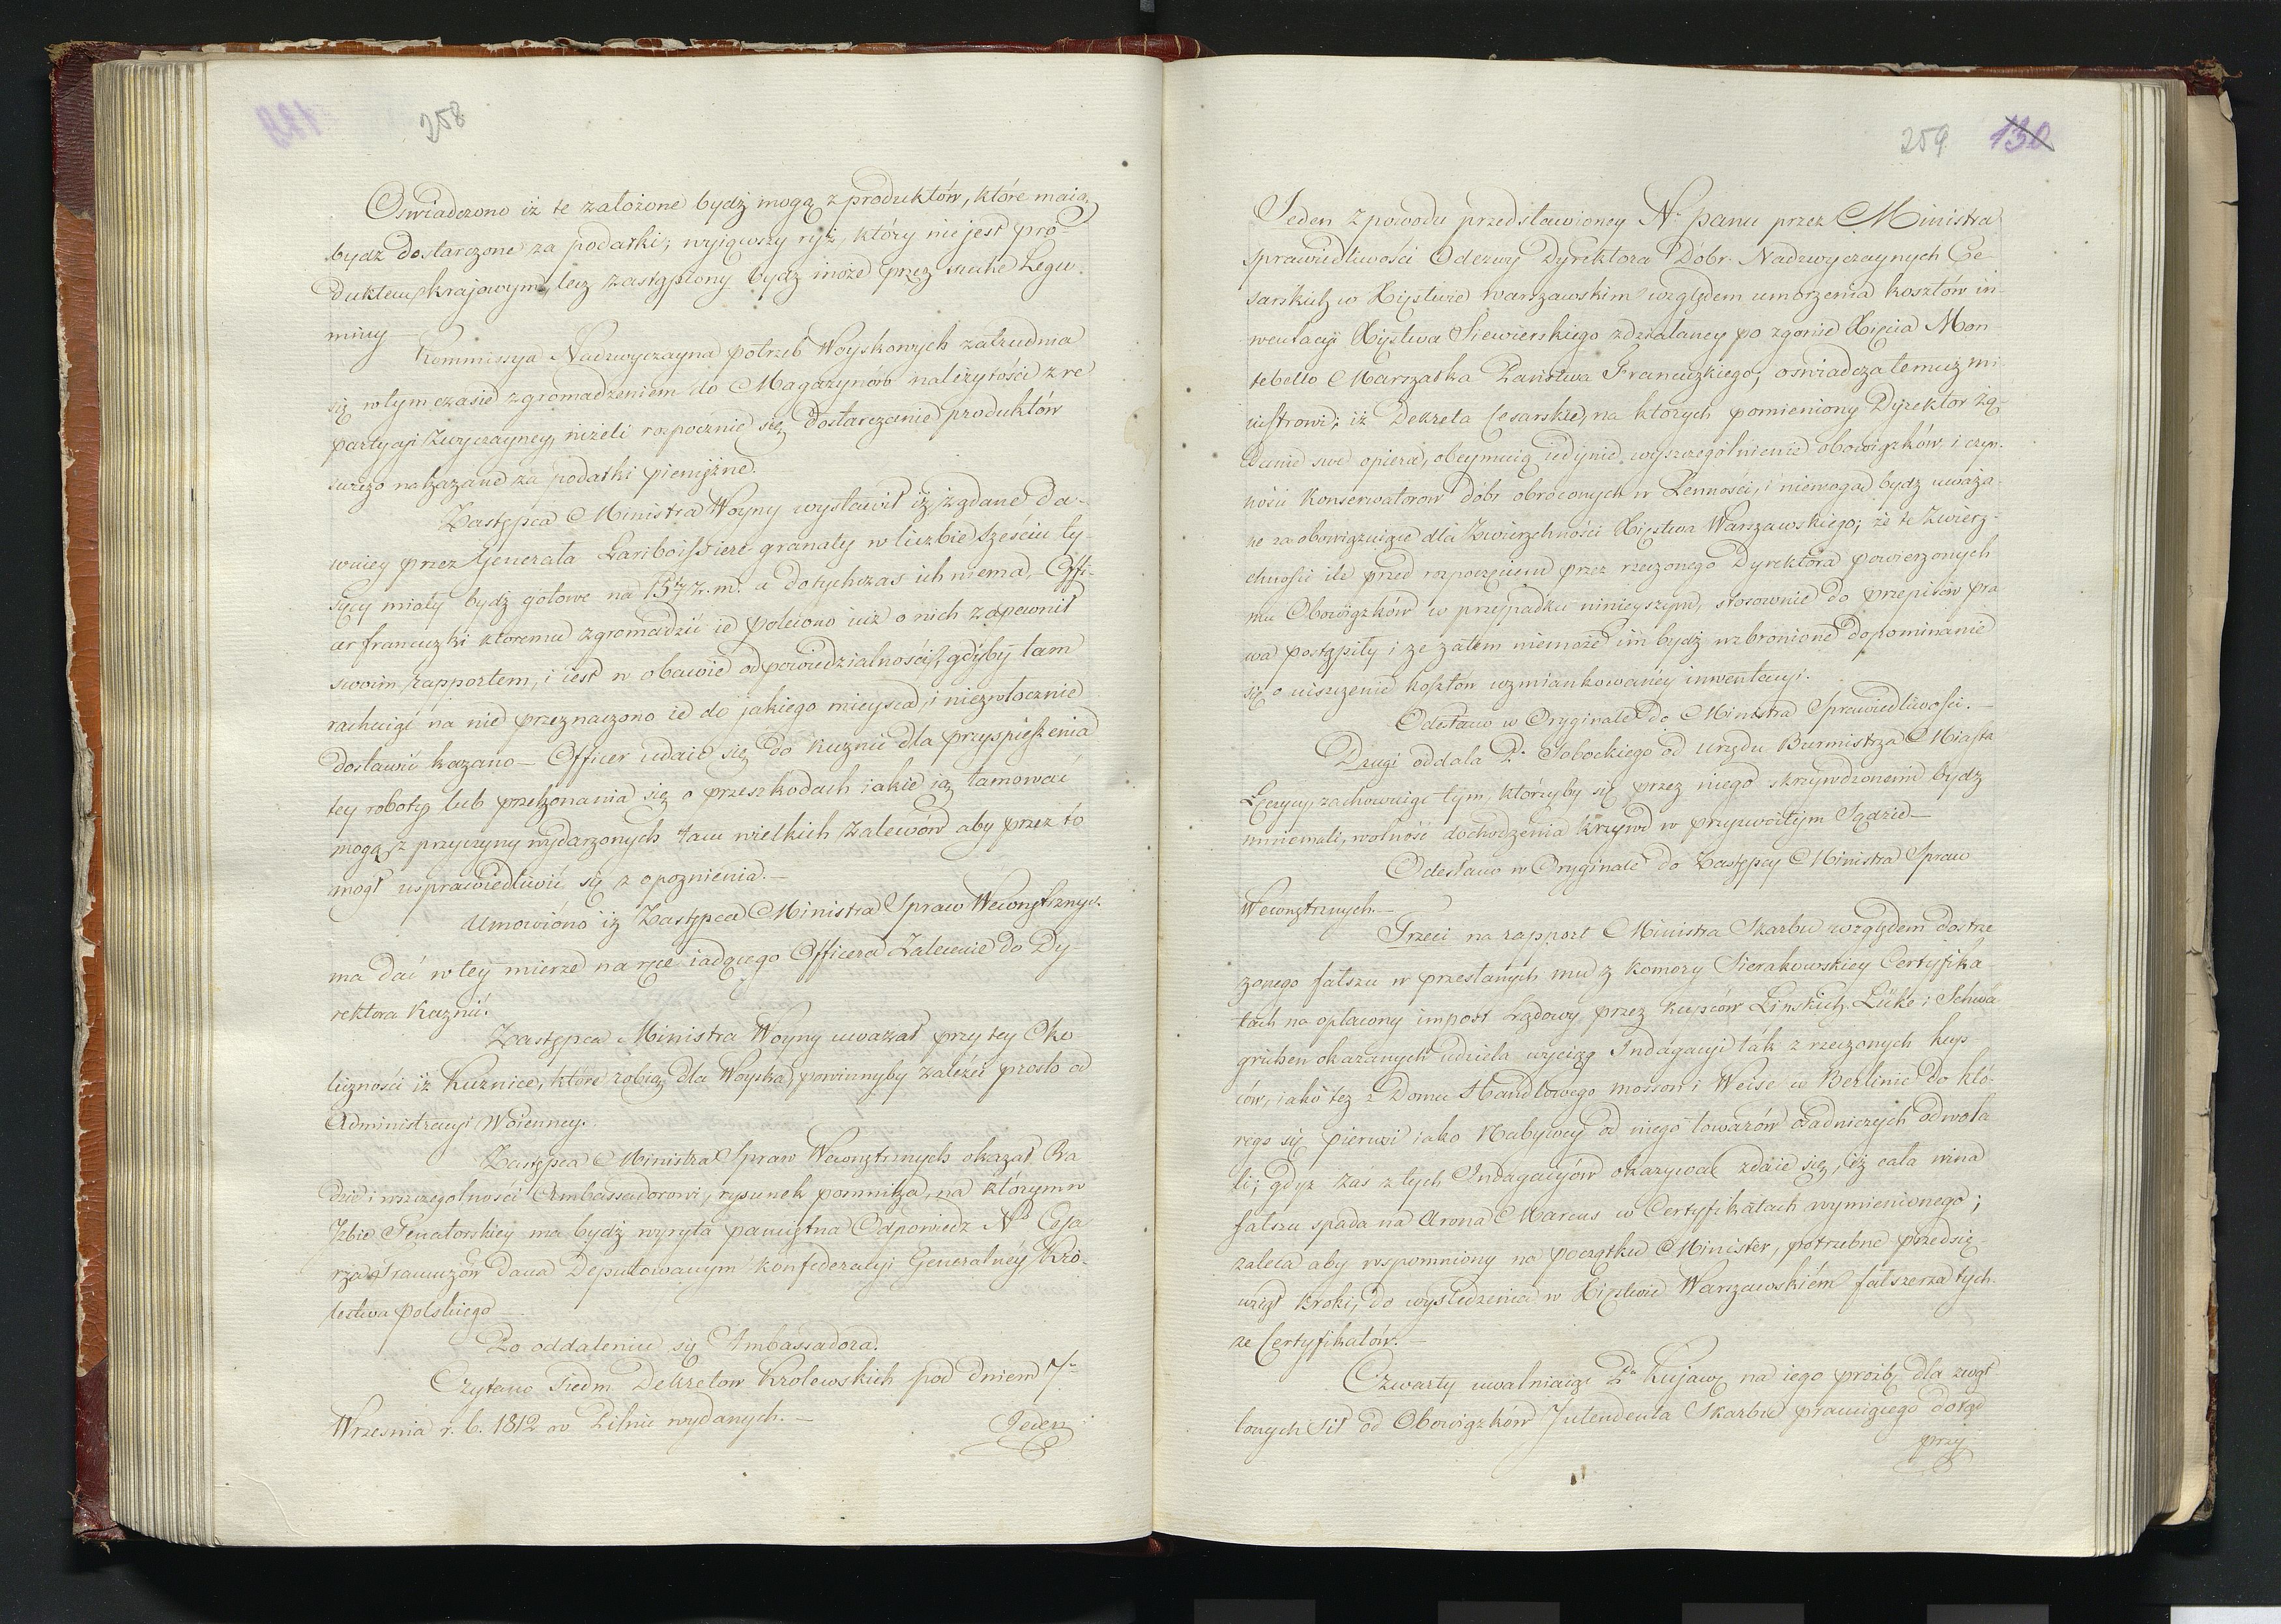 258
Oswiadczono iż te założone bydź mogą z produktów, które maią
bydź dostarczone za podatki; wyiąwszy ryż, który nie jest pro
duktem krajowym, lecz zastąpiony bydź może przez suche Legu
miny —
Kommissya Nadzwyczayna potrzeb Woyskowych zatrudnia
się w tym czasie zgromadzeniem do Magazynów należytości z re
partycyi Zwyczayney, niżeli rozpocznie się Dostarczanie produktów
świeżo nakazane za podatki pieniężne.
Zastępca Ministra Woyny wystawił iż żądane da-
wniey przez Generała Lariboissiere granaty w liczbie sześciu ty-
sięcy miały bydź gotowe na 15ty z. m. a dotychczas ich niema, — Offi-
cer francuzki któremu zgromadzić ie polecono iuż o nich zapewnił
swoim rapportem, i iest w obawie odpowiedzialności, gdyby tam
rachuiąc na nie przeznaczono ie do jakiego mieysca, i niezwłocznie
dostawić kazano — Officer udaie się do Kuznic dla przyspieszenia
tey roboty, lub przekonania się o przeszkodach iakie ią tamować
mogą z przyczyny wydarzonych tam wielkich zalewów aby przez to
mógł usprawiedliwić się z opoznienia. —
Umowióno iż Zastępca Ministra Spraw Wewnętrznych
ma dać w tey mierze na ręce iadącego Officera Zalecenie do Dy
rektora Kuznic.
Zastępca Ministra Woyny uważał przy tey Oko
liczności iż Kuznice, które robią dla Woyska, powinnyby zależeć prosto od
Administracyi Woienney.
Zastępca Ministra Spraw Wewnętrznych okazał Ra
dzie i w szczególności Ambassadorowi, rysunek pomnika, na którym w
Izbie Senatorskiey ma bydź wyryta pamiętna Odpowiedź No Cesa
rza Francuzów dana Deputowanym Konfederacyi Generalnéy Kró-
lestwa Polskiego —
Po oddaleniu się Ambassadora.
Czytano siedm Dekretow Krolewskich pod dniem 7o
Wrzesnia r. b. 1812 w Pilnic wydanych. —
Jeden
259 130
Jeden z powodu przedstawioney No Panu przez Ministra
Sprawiedliwości Odezwy Dyrektora Dóbr Nadzwyczaynych Ce-
sarskich w Xięstwie Warszawskim względem umorzenia kosztów in-
wentacyi Xięstwa Siewierskiego zdziałaney po zgonie Xięcia Mon
tebello Marszałka Państwa Francuzkiego, oświadcza temuż Mi
nistrowi; iż Dekreta Cesarskie, na których pomieniony Dyrektor żą-
danie swe opiera, obeymuią iedynie wyszczególnienie obowiązków i czyn-
ności Konserwatorow dóbr obroconych w Lenności, i niemogą bydź uważa-
ne za obowiązuiące dla Zwierzchności Xięstwa Warszawskiego; że te Zwierz-
chności ile przed rozpoczęciem przez rzeczonego Dyrektora powierzonych
mu Obowiązków w przypadku ninieyszym, stosownie do przepisów pra
wa postąpiły i że zatem niemoże im bydź wzbronione dopominanie
się o uiszczenie kosztów wzmiankowanéy inwentacyi.
Odesłano w Oryginale do Ministra Sprawiedliwości. —
Drugi oddala P. Sobockiego od urzędu Burmistrza Miasta
Łęczycy, zachowuiąc tym, którzyby się przez niego skrzywdzonemi bydź
mniemali, wolność dochodzenia krzywd w przyzwoitym Sądzie —
Odesłano w Oryginale do Zastępcy Ministra Spraw
Wewnętrznych. —
Trzeci na rapport Ministra Skarbu względem dostrze
żonego fałszu w przesłanych mu z Komory Sierakowskiey Certyfika
tach na opłacony impost Lądowy przez kupców Lipskich Lüke i Schwa
grichen okazanych udziela wyciąg Indagacyi ták z rzeczonych kup-
ców, iako też z Domu Handlowego Mosson i Weise w Berlinie do któ-
rego się pierwsi iako Nabywcy od niego towarów osadniczych odwoła
li; gdyż zaś z tych Indagacyów okazywać zdaie się, iż cała wina
fałszu spada na Arona Marcus w Certyfikatach wymienionego;
zaleca aby wspomniony na początku Minister, potrzebne przedsię-
wziął kroki, do wyśledzenia w Xięstwie Warszawskiém fałszerza tych
że Certyfikatów. —
Czwarty uwalniaiąc Pa Kujawę na iego prożbę dla zwąt
lonych sił od Obowiązków Intendenta Skarbu pracuiącego dotąd
przy